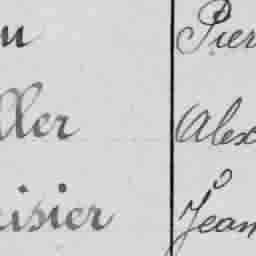 u Pier
ller Alex
isier Jean